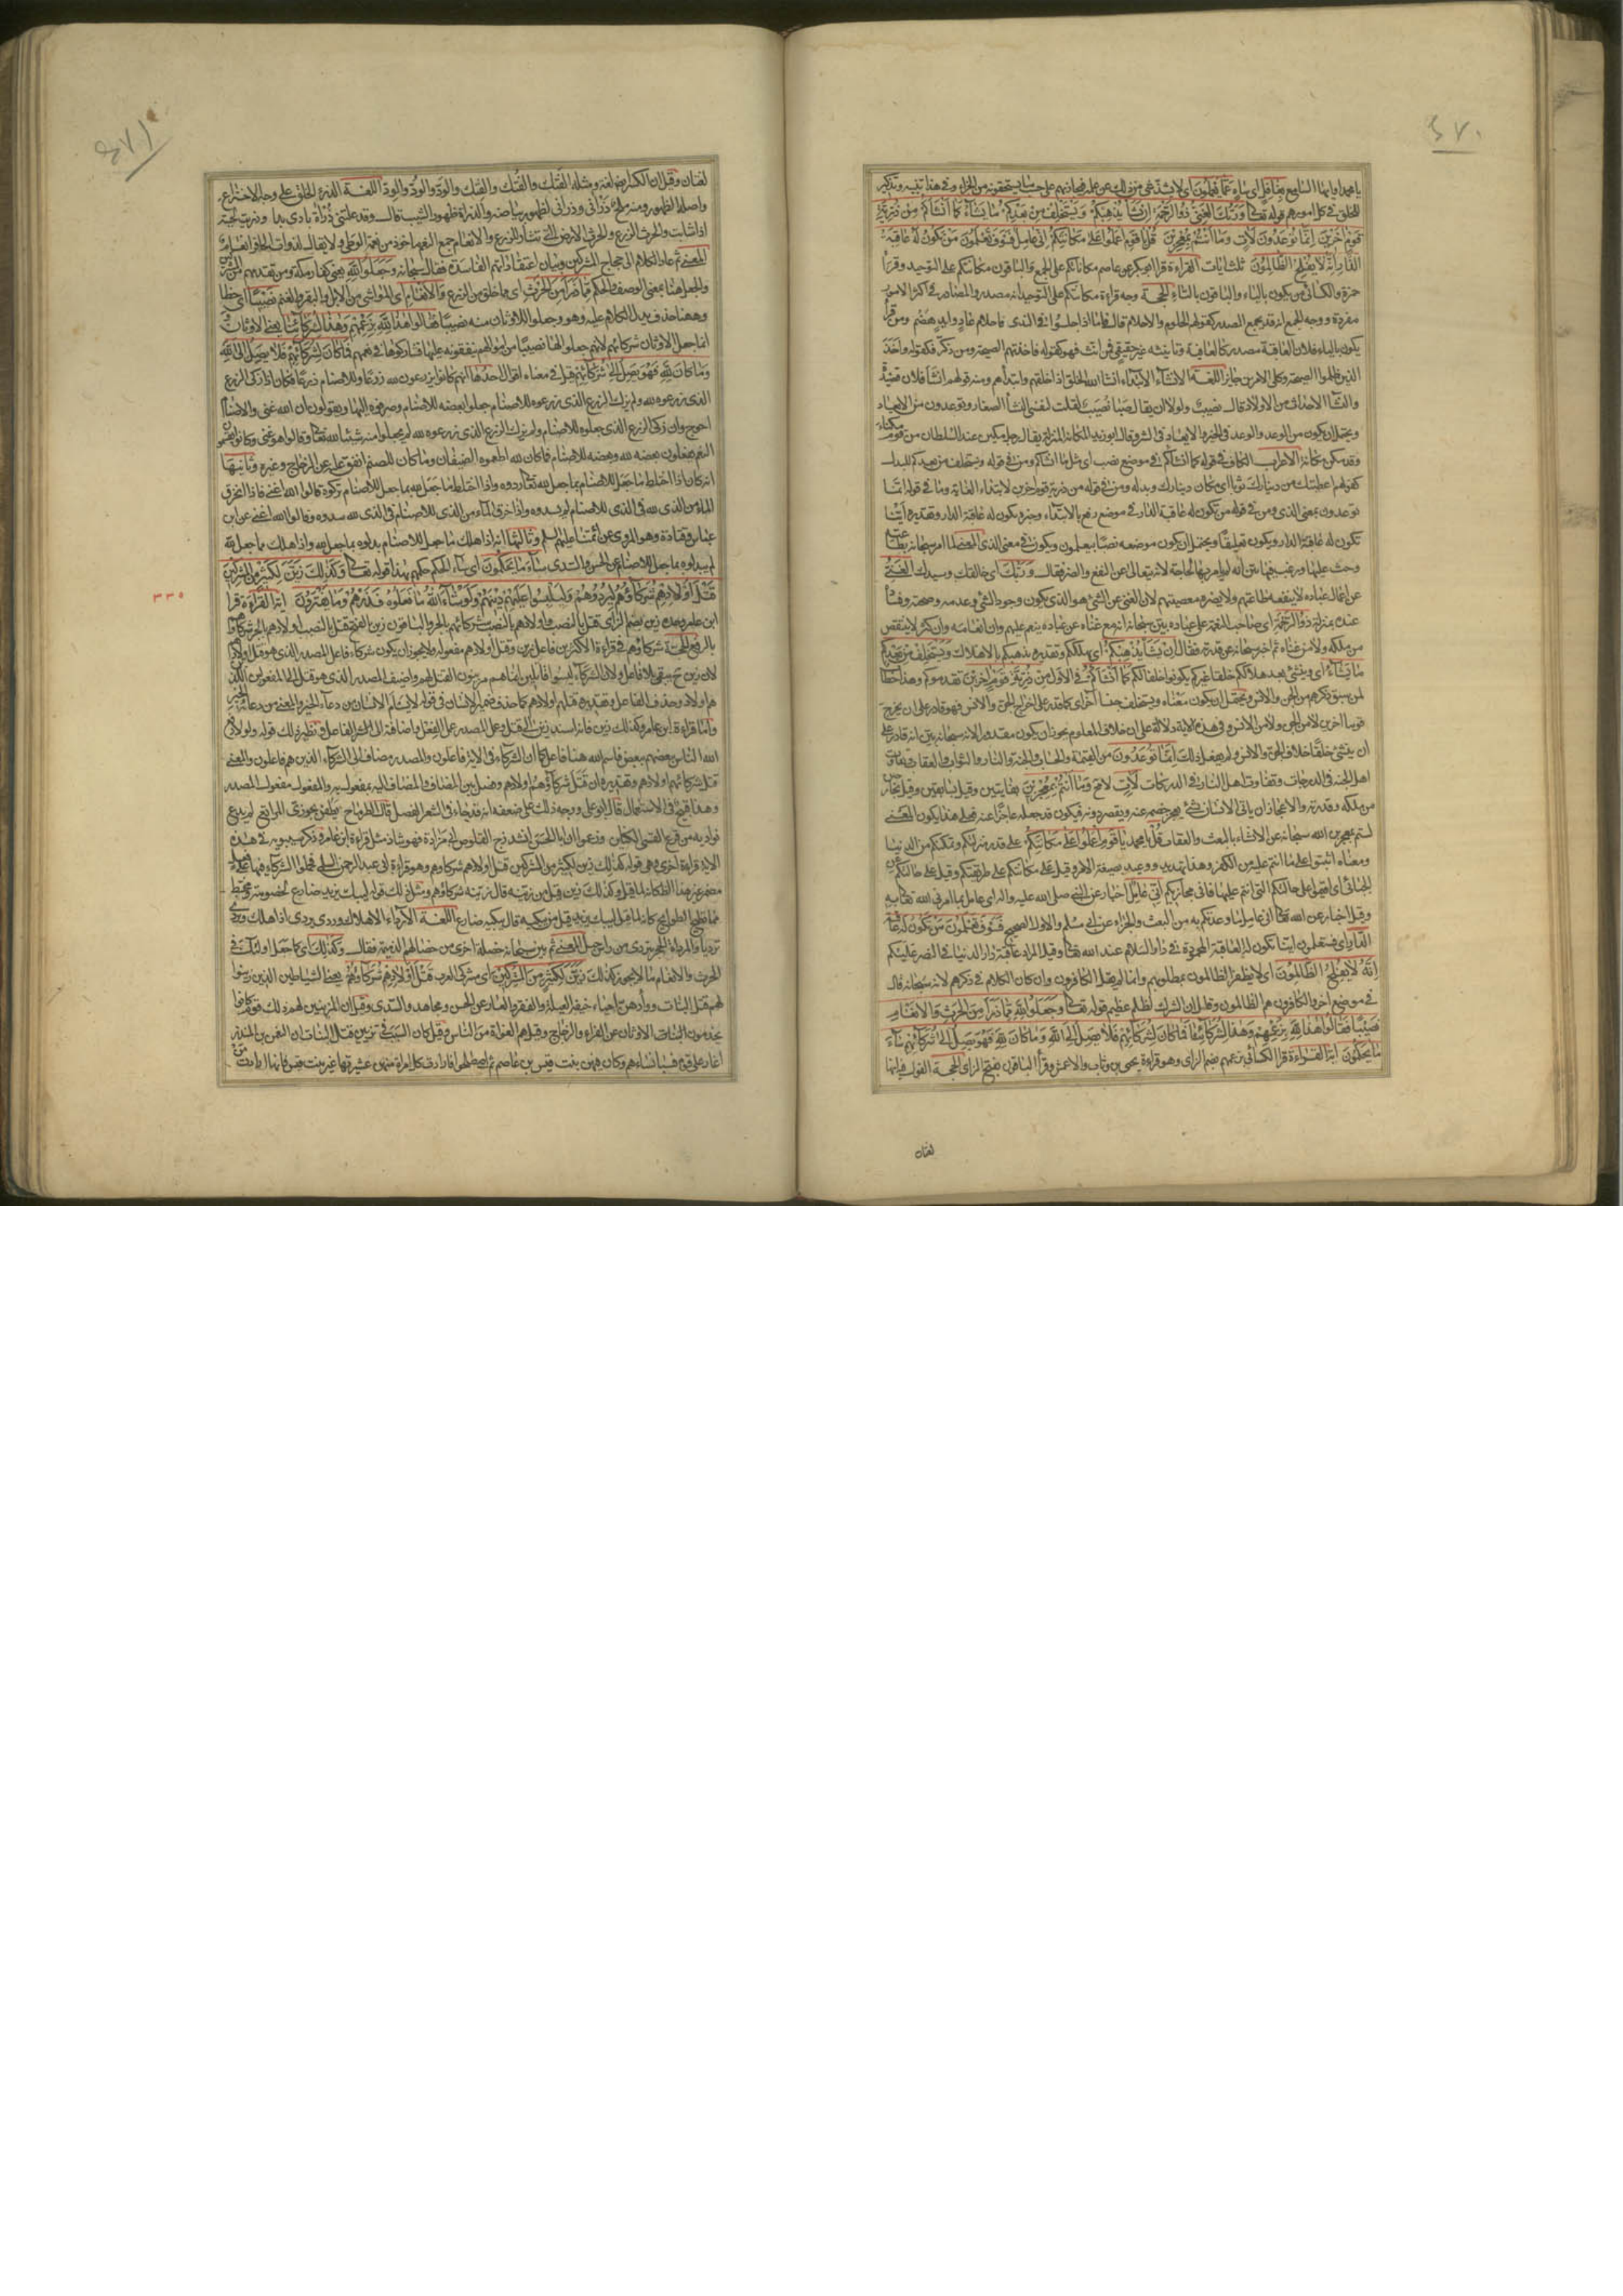 ٤٧٠
يا محمد او ايها السامع بغافل اى ساه عما يعملون اى لا يشذ شئ من ذلك عن علمه فيجازيهم على حسب ما يستحقونه من الجزاء وفى هذا تنبيه وتذكير
للخلق فى كل امورهم قوله تعالى وربك الغنى ذو الرحمة ان يشأ يذهبكم ويستخلف من بعدكم ما يشاء كما أنشأكم من ذرية
قوم آخرين انما توعدون لآت وما انتم بمعجزين قل يا قوم اعملوا على مكانتكم انى عامل فسوف تعلمون من تكون له عاقبة
الدار انه لا يفلح الظالمون ثلث ايات القراءة قرأ ابو بكر عن عاصم مكاناتكم على الجمع والباقون مكانتكم على التوحيد وقرأ
حمزة والكسائى من يكون بالياء والباقون بالتاء الحجة وجه قراءة مكانتكم على التوحيد انه مصدر والمصادر فى اكثر الامور
مفردة ووجه الجمع انه قد يجمع المصدر كقولهم الحلوم والاحلام قال فاما اذا جلسوا فى الندى فاحلام عاد وايد هضم ومن قرأ
يكون بالياء فلان العاقبة مصدر كالعافية وتانيثه غير حقيقى فمن انث فهو كقوله فاخذتهم الصيحة ومن ذكر فكقوله واخذ
الذين ظلموا الصيحة وكلا الامرين جايز اللغة الانشاء الابتداء انشا الله الخلق اذا خلقهم وابتدأهم ومنه قولهم انشا فلان قصيدة
والنشأ الاحداث من الاولاد قال نصيب ولولا ان يقال صبا نصيب لقلت بنفسى النشأ الصغار وتوعدون من الايعاد
ويحتمل ان يكون من الوعد والوعد فى الخير والايعاد فى الشر وقال ابو زيد المكانة المنزلة يقال رجل مكين عند السلطان من قوم مكناء
وقد مكن مكانة الاعراب الكاف فى قوله كما انشأكم فى موضع نصب اى مثل ما انشأكم ومن فى قوله ويستخلف من بعدكم للبدل
كقولهم اعطيتك من دينارك ثوبا اى مكان دينارك وبدله ومن فى قوله من ذرية قوم اخرين لابتداء الغاية وما فى قوله انما
توعدون بمعنى الذى ومن فى قوله من تكون له عاقبة الدار فى موضع رفع بالابتداء وخبره تكون له عاقبة الدار وتقديره اينا
تكون له عاقبة الدار ويكون تعليقا ويحتمل ان يكون موضعه نصبا بيعلمون ويكون فى معنى الذى المعنى لما امر سبحانه بطاعته
وحث عليها ورغب فيها بين انه لم يامر بها لحاجة لانه يتعالى عن النفع والضر فقال وربك اى خالقك وسيدك الغنى
عن اعمال عباده لا ينفعه طاعتهم ولا يضره معصيتهم لان الغنى عن الشئ هو الذى يكون وجود الشئ وعدمه وصحته وفساده
عنده بمنزلة ذو الرحمة اى صاحب النعمة على عباده بين سبحانه انه مع غناه عن عباده ينعم عليهم وان انعامه وان كثر لا ينقص
من ملكه ولا من غناه ثم اخبر سبحانه عن قدرته فقال ان يشأ يذهبكم اى يهلككم وتقديره يذهبكم بالاهلاك ويستخلف من بعدكم
ما يشاء اى وينشئ بعد هلاككم خلقا غيركم يكونوا خلفا لكم كما انشأكم فى الاول من ذرية قوم آخرين تقدموكم وهذا خطاب
لمن سبق ذكرهم من الجن والانس ويحتمل ان يكون معناه ويستخلف جنسا آخر اى كما قدر على اخراج الجن من والانس فهو قادر على ان يخرج
قوما آخرين لا من الجن ولا من الانس وفى هذه الاية دلالة على ان خلاف المعلوم يجوز ان يكون مقدورا لانه سبحانه بين انه قادر على
ان ينشئ خلقا خلاف الجن والانس ولم يفعل ذلك انما توعدون من القيمة والحساب والجنة والنار والثواب والعقاب وتفاوت
اهل الجنة فى الدرجات وتفاوت اهل النار فى الدركات لآت لا محالة وما انتم بمعجزين بفايتين وقيل بسابقين وقيل بخارجين
من ملكه وقدرته والاعجاز ان ياتى الانسان بشئ يعجز خصمه عنه ويقصر دونه فيكون قد جعله عاجزا عنه فعلى هذا يكون المعنى
لستم بمعجزين الله سبحانه عن الاتيان بالبعث والعقاب قل يا محمد يا قوم اعملوا على مكانتكم على قدر منزلتكم وتمكنكم من الدنيا
ومعناه اثبتوا على ما انتم عليه من الكفر وهذا تهديد ووعيد بصيغة الامر وقيل على مكانتكم على طريقتكم وقيل على حالتكم عن
الجبائى اى اقيموا على حالتكم التى انتم عليها فانى مجازيكم انى عامل اخبار عن النبى صلى الله عليه واله اى عامل بما امرنى الله تعالى به
وقيل اخبار عن الله تعالى انى عامل ما وعدتكم به من البعث والجزاء عن ابى مسلم والاول الصحيح فسوف تعلمون من تكون له عاقبة
الدار اى فستعلمون اينا تكون له العاقبة المحمودة فى دار السلام عند الله تعالى وقيل المراد عاقبة دار الدنيا فى النصر عليكم
انه لا يفلح الظالمون اى لا يظفر الظالمون بمطلوبهم وانما لم يقل الكافرون وان كان الكلام فى ذكرهم لانه سبحانه قال
فى موضع آخر والكافرون هم الظالمون وقال ان الشرك لظلم عظيم قوله تعالى وجعلوا لله مما ذرأ من الحرث والانعام
نصيبا فقالوا هذا لله بزعمهم وهذا لشركائنا فما كان لشركائهم فلا يصل الى الله وما كان لله فهو يصل الى شركائهم ساء
ما يحكمون اية القراءة قرأ الكسائى بزعمهم بضم الزاى وهو قراءة يحيى بن وثاب والاعمش وقرأ الباقون بفتح الزاى الحجة القول فيه انها
لغتان
٤٧١
لغتان وقيل ان الكسر ايضا لغة ومثله الفَتك والفُتك والفِتك والوَد والوُد والوِد اللغة الذرء الخلق على وجه الاختراع
واصله الظهور ومنه ملح ذرآنى وذرآنى لظهور بياضه والذرأة ظهور الشيب قال وقد علتنى ذرأة بادى بدى وذرئت لحيته
اذا شابت والحرث الزرع والحرث الارض التى تثار للزرع والانعام جمع النعم ماخوذ من نعمة الوطى ولا يقال لذوات الحافر انعام
المعنى ثم عاد الكلام الى حجاج المشركين وبيان اعتقاداتهم الفاسدة فقال سبحانه وجعلوا لله يعنى كفار مكة ومن تقدمهم من المشركين
والجعل هنا بمعنى الوصف والحكم مما ذرأ من الحرث اى مما خلق من الزرع والانعام اى المواشى من الابل والبقر والغنم نصيبا اى حظا
وههنا حذف يدل الكلام عليه وهو وجعلوا للاوثان منه نصيبا فقالوا هذا لله بزعمهم وهذا لشركائنا يعنى الاوثان
انما جعل الاوثان شركائهم لانهم جعلوا لها نصيبا من اموالهم ينفقونه عليها فشاركوها فى نعمهم فما كان لشركائهم فلا يصل الى الله
وما كان لله فهو يصل الى شركائهم قيل فى معناه اقوال احدها انهم كانوا يزرعون لله زرعا وللاصنام زرعا فكان اذا زكى الزرع
الذى زرعوه لله ولم يزك الزرع الذى زرعوه للاصنام جعلوا بعضه للاصنام وصرفوه اليها ويقولون ان الله غنى والاصنام
احوج وان زكى الزرع الذى جعلوه للاصنام ولم يزك الزرع الذى زرعوه لله لم يجعلوا منه شيئا لله تعالى وقالوا هو غنى وكانوا يقسمون
النعم فيجعلون بعضه لله وبعضه للاصنام فما كان لله اطعموه الضيفان وما كان للصنم انفق عليه عن الزجاج وغيره وثانيها
انه كان اذا اختلط ما جعل للاصنام بما جعل لله تعالى ردوه واذا اختلط ما جعل لله بما جعل للاصنام تركوه وقالوا الله اغنى فاذا تخرق
الماء من الذى لله فى الذى للاصنام لم يسدوه واذا خرق الماء من الذى للاصنام فى الذى لله سدوه وقالوا الله اغنى عن ابن
عباس وقتادة وهو المروى عن ائمتنا عليهم السلم وثالثها انه اذا هلك ما جعل للاصنام بدلوه بما جعل لله واذا هلك ما جعل لله
لم يبدلوه بما جعل للاصنام عن الحسن والسدى ساء ما يحكمون اى ساء الحكم حكمهم هذا قوله تعالى وكذلك زين لكثير من المشركين
قتل اولادهم شركاؤهم ليردوهم وليلبسوا عليهم دينهم ولو شاء الله ما فعلوه فذرهم وما يفترون اية القراءة قرأ
ابن عامر وحده زين بضم الزاى قتل بالرفع اولادهم بالنصب شركائهم بالجر والباقون زين بالفتح قتل بالنصب اولادهم بالجر شركاؤهم
بالرفع الحجة شركاؤهم فى قراءة الاكثرين فاعل زين وقتل اولادهم مفعوله ولا يجوز ان يكون شركاء فاعل المصدر الذى هو قتل اولادهم
لان زين ح يبقى بلا فاعل ولان الشركاء ليسوا قاتلين انما هم مزينون القتل لهم واضيف المصدر الذى هو قتل الى المفعولين الذين
هم اولاد وحذف الفاعل وتقديره قتلهم اولادهم كما حذف ضمير الانسان فى قوله لا يسأم الانسان من دعاء الخير والمعنى من دعائه الخير
واما قراءة ابن عامر وكذلك زين فانه اسند زين الى قتل وعمل المصدر عمل الفعل واضافه الى الشركاء الفاعل ونظير ذلك قوله ولولا دفع
الله الناس بعضهم ببعض فاسم الله هنا فاعل كما ان الشركاء فى الاية فاعلون والمصدر مضاف الى الشركاء الذين هم فاعلون والمعنى
قتل شركائهم اولادهم وتقديره ان قتل شركاؤهم اولادهم وفصل بين المضاف والمضاف اليه بمفعول به والمفعول مفعول المصدر
وهذا قبيح فى الاستعمال قال ابو على ووجه ذلك على ضعفه انه قد جاء فى الشعر الفصل قال الطرماح يطفن بحوزى المراتع لم يرع
بواديه من قرع القسى الكنائن وزعموا ان ابا الحسن انشد زج القلوص ابى مزادة فهو شاذ مثل قراءة ابن عامر وذكر سيبويه فى هذه
الاية قراءة اخرى وهى قوله وكذلك زين لكثير من المشركين قتل اولادهم شركاؤهم وهو قراءة ابى عبد الرحمن السلمى فحملوا الشركاء فيها على
مضمر غير هذا الظاهر كانه لما قيل وكذلك زين قيل من زينه قال زينه شركاؤهم ومثل ذلك قوله ليبك يزيد ضارع لخصومة ومختبط
مما تطيح الطوايح كانه لما قيل ليبك يزيد قيل من يبكيه قال يبكيه ضارع اللغة الارداء الاهلاك وردى يردى اذا هلك وتردى
ترديا والمرداة الحجر يتردى من راس جبل المعنى ثم بين سبحانه خصلة اخرى من خصالهم الذميمة فقال وكذلك اى كما جعل اولئك فى
الحرث والانعام ما لا يجوز كذلك زين لكثير من المشركين اى مشركى العرب قتل اولادهم شركاؤهم يعنى الشياطين الذين زينوا
لهم قتل البنات ووأدهن احياء خيفة العيلة والفقر والعار عن الحسن ومجاهد والسدى وقيل ان المزينين لهم ذلك قوم كانوا
يخدمون الاوثان عن الفراء والزجاج وقيل هم الغواة من الناس وقيل كان السبب فى تزيين قتل البنات ان النعمن بن المنذر
اغار على قوم فسبا نساءهم وكان فيهن بنت قيس بن عاصم ثم اصطلحوا فارادت كل امرأة منهن عشيرتها غير بنت قيس فانها ارادت من
٣٣٥